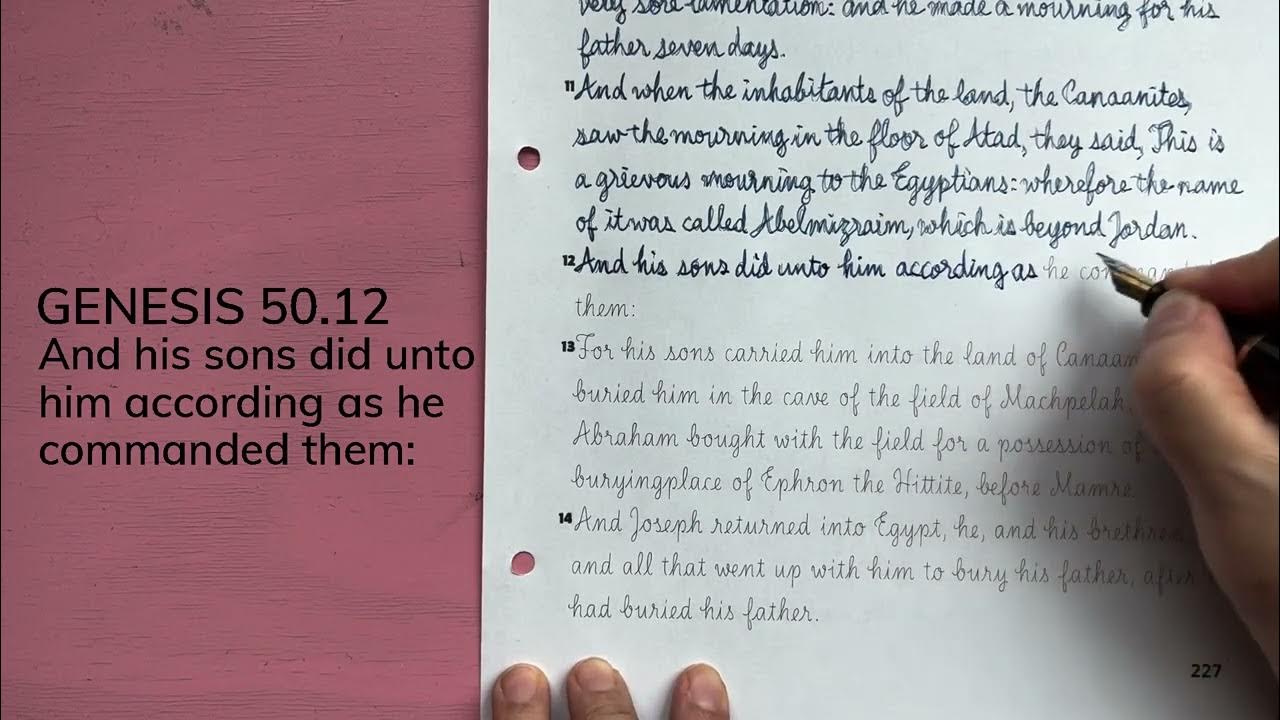 GENESIS 50.12
And his sons did unto
him according as he
commanded them:
very sore lamentation: and he made a mourning for his
father seven days.
11 And when the inhabitants of the land, the Canaanites,
saw the mourning in the floor of Atad, they said, This is
a grievous mourning to the Egyptians: wherefore the name
of it was called Abelmizraim, which is beyond Jordan.
12 And his sons did unto him according as he
them:
13 For his sons carried him into the land of Canaan
buried him in the cave of the field of Machpelah,
Abraham bought with the field for a possession of
buryingplace of Ephron the Hittite, before Mamre.
14 And Joseph returned into Egypt, he, and his brethren,
and all that went up with him to bury his father, after
had buried his father.
227